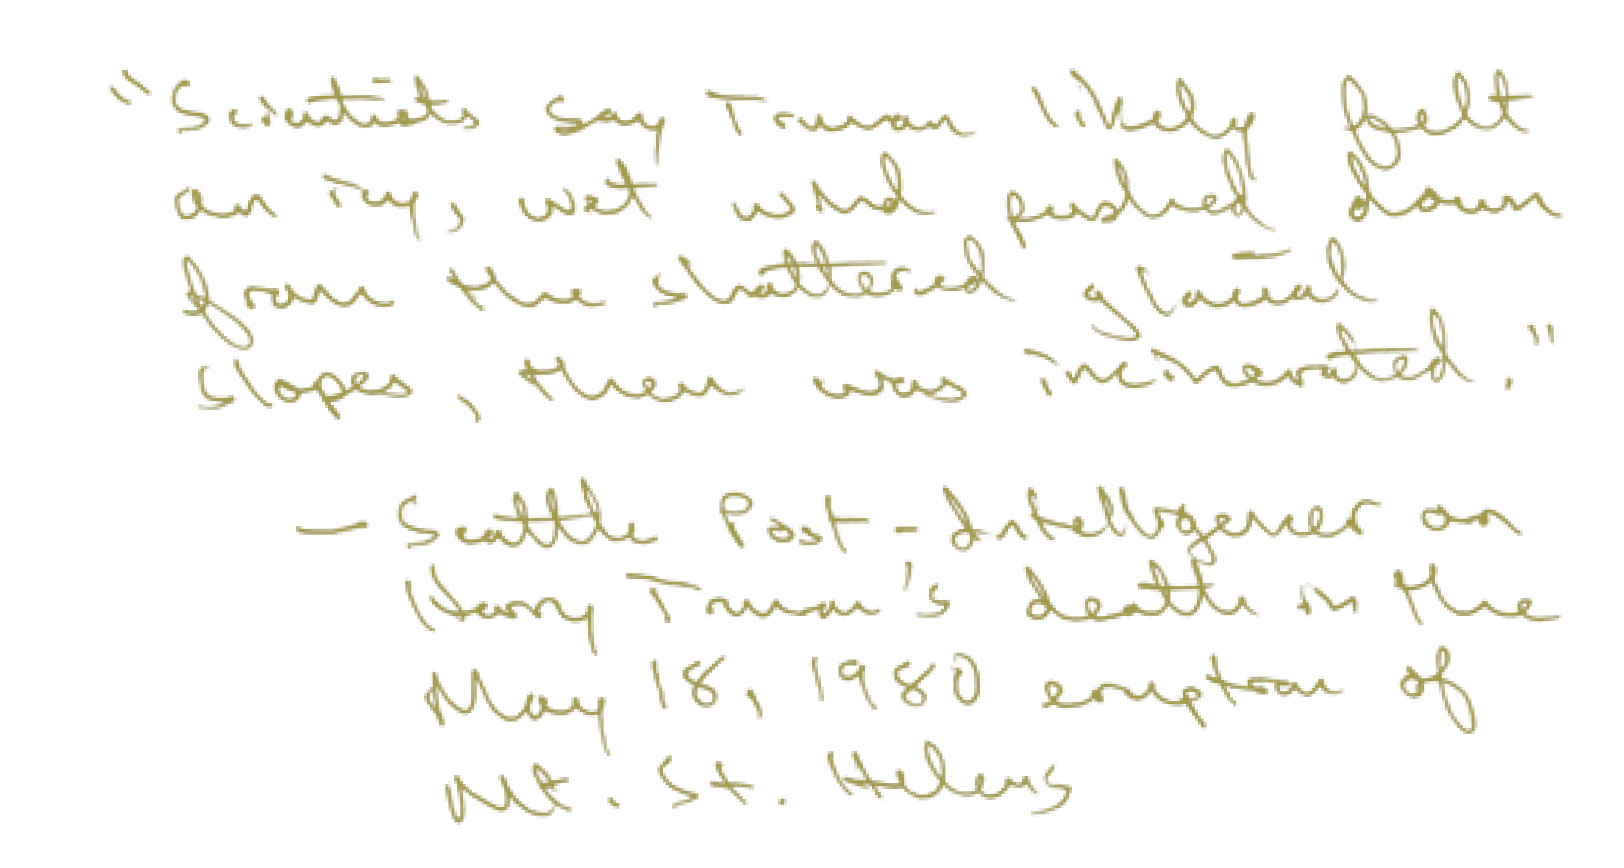 "Scientists say Truman likely felt
an icy, wet wind pushed down
from the shattered glacial
slopes, then was incinerated."
— Seattle Post-Intelligencer on
Harry Truman's death in the
May 18, 1980 eruption of
Mt. St. Helens